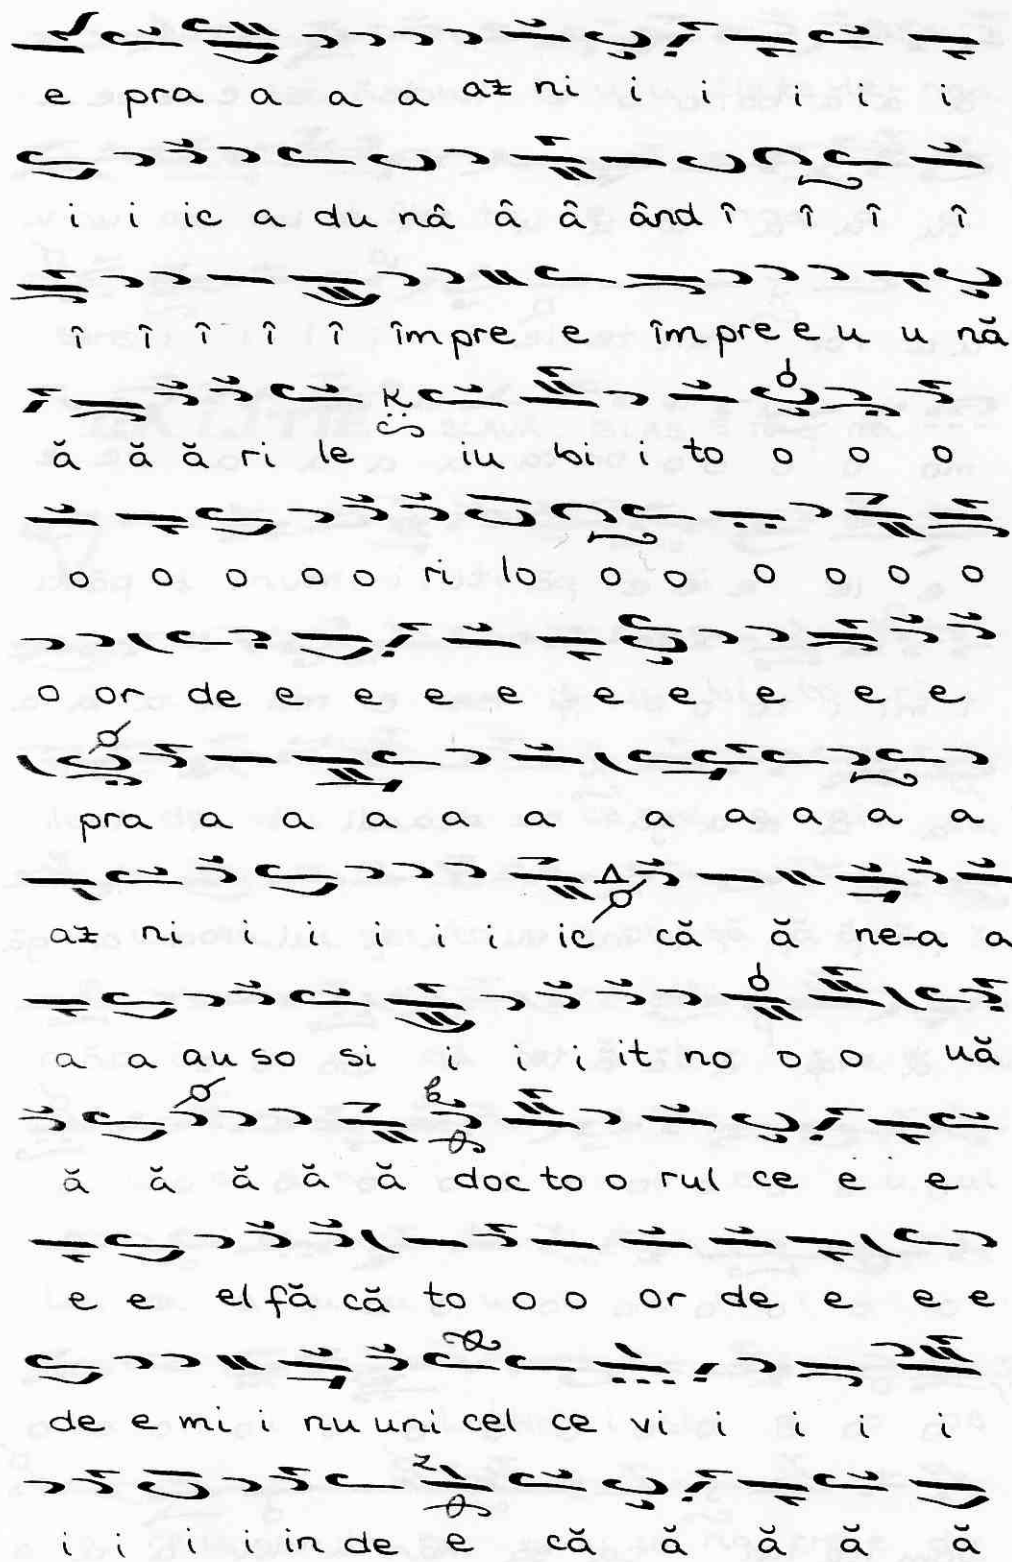 e pra a a a az ni i i i i i
i i ie a du nâ â â ând î î î î
î î î î î împre e împre e u u nă
ă ă ă ri le iu bi i to o o o
o o o o o ri lo o o o o o o
o or de e e e e e e e e e e
pra a a a a a a a a a a
az ni i i i i i ie că ă ne-a a
a a au so si i i i it no o o uă
ă ă ă ă ă doc to o rul ce e e
e e el fă că to o o or de e e e
de e mi i nu uni cel ce vi i i i i
i i i i in de e că ă ă ă ă